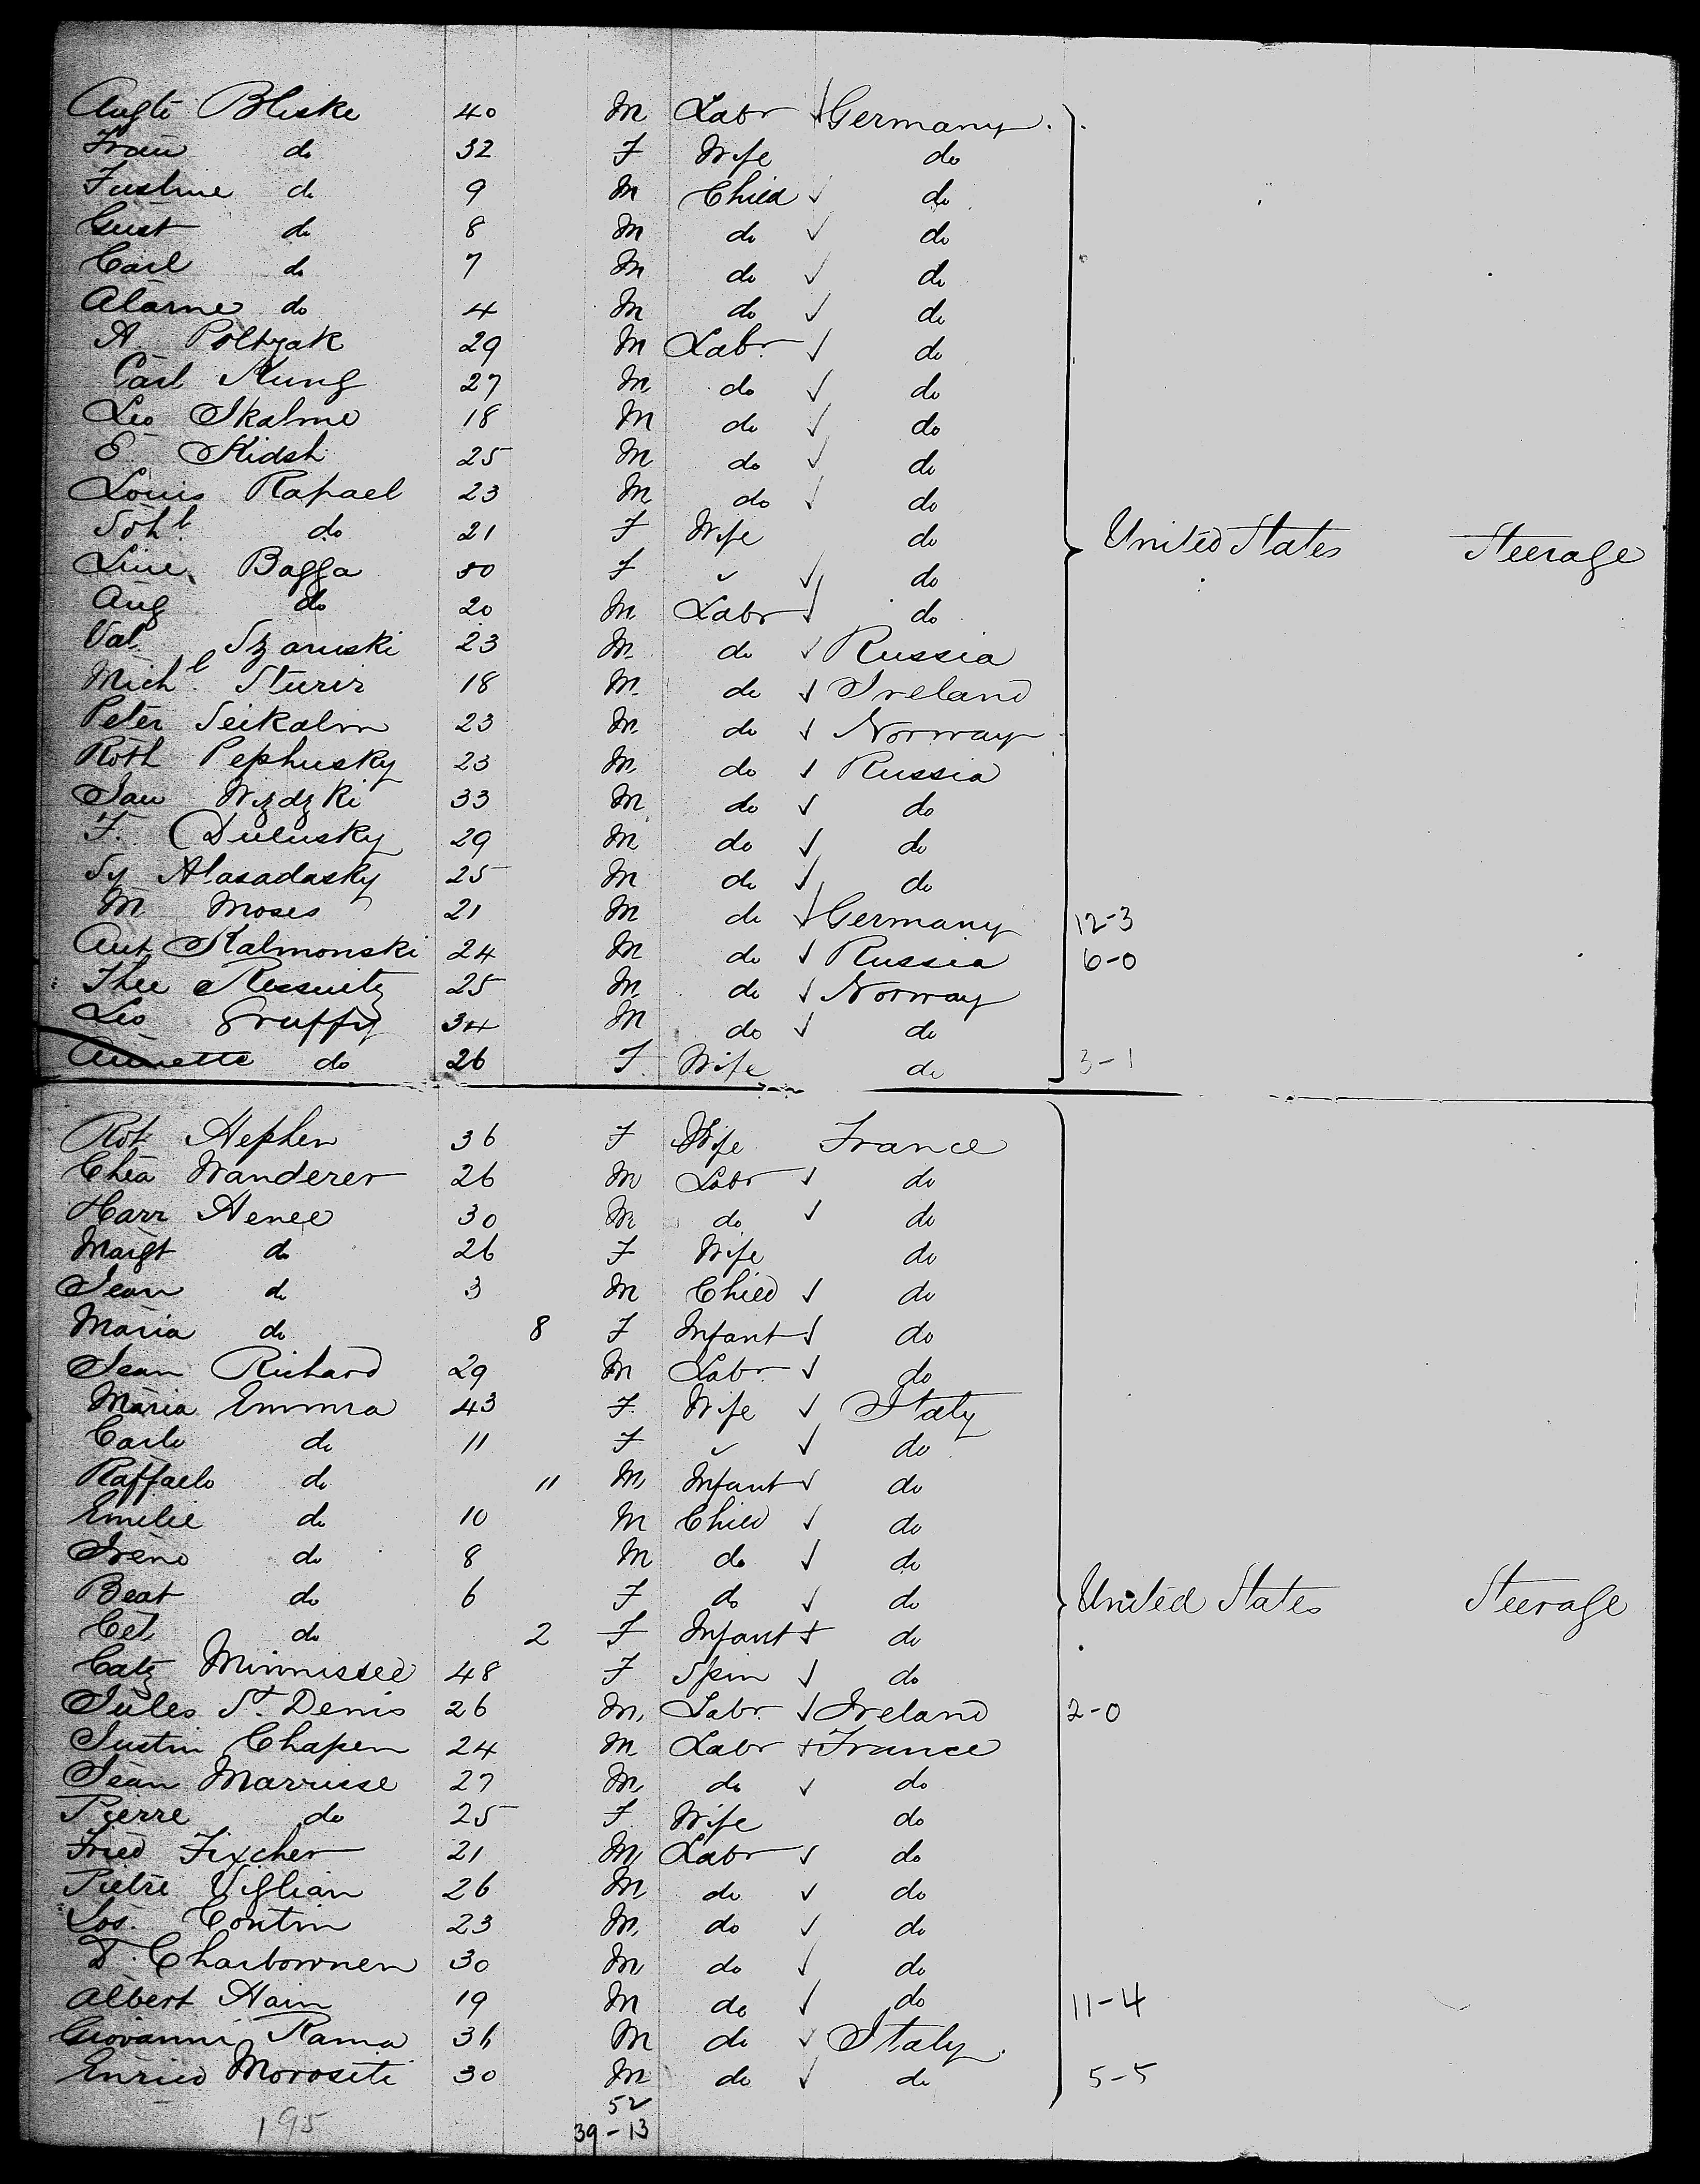 Augte Bliske 40 M Labr Germany
Frau do 32 F Wife do
Justine do 9 M Child do
Gust do 8 M do do
Carl do 7 M do do
do 4 M do do
A. Poltzak 29 M Labr do
Carl Kung 27 M do do
Leo Skalme 18 M do do
E. Kidsh 25 M do do
Louis Rapael 23 M do do
do 21 F Wife do
Line Bagga 50 F do
United States Steerage
Aug do 20 M Labr do
Val Szamski 23 M do Russia
Michl Sturir 18 M do Ireland
Peter Seikalm 23 M do Norway
Roth Pephusky 23 M do Russia
Jan Wizdzki 33 M do do
F. Dulusky 29 M do do
Alasadasky 25 M do do
M Moses 21 M do Germany 12-3
Ant Kalmonski 24 M do Russia 6-0
Thee Ressuitz 25 M do Norway
Leo Gruffy 34 M do do
Annette do 26 F Wife do 3-1
Rot Hephen 36 F Wife France
Chea Wanderer 26 M Labr do
Harr Henee 30 M do do
Margt do 26 F Wife do
Jean do 3 M Child do
Maria do 8 F Infant do
Jean Richard 29 M Labr do
Maria Emma 43 F Wife Italy
Carlo do 11 F do
Raffaelo do 11 M Infant do
Emilie do 10 M Child do
Ireno do 8 M do do
Beat do 6 F do do
United States Steerage
Cel do 2 F Infant do
Catz Minnissee 48 F Spin do
Jules St. Denis 26 M Labr Ireland 2-0
Justin Chapen 24 M Labr France
Jean Marrisse 27 M do do
Pierre do 25 F Wife do
Fried Fixcher 21 M Labr do
Pietre Viglian 26 M do do
Jos. Contin 23 M do do
D. Charbownen 30 M do do
Albert Hain 19 M do do 11-4
Giovanni Rama 36 M do Italy
Enrico Morositi 30 M do do 5-5
52
195 39-13